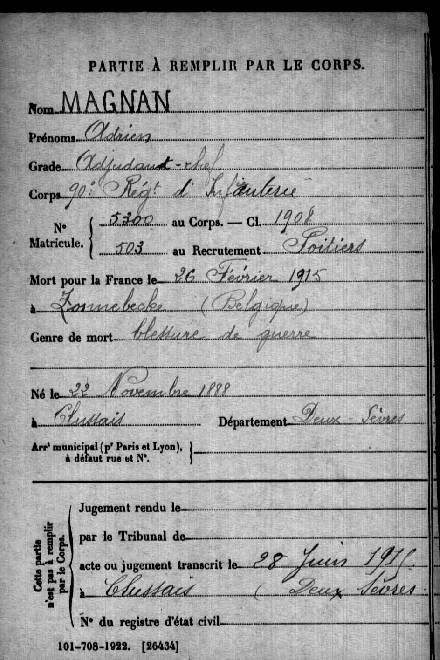 PARTIE À REMPLIR PAR LE CORPS.
Nom MAGNAN
Prénoms Adrien
Grade Adjudant-chef
Corps 90e Régt d'Infanterie
N° Matricule. { 5300 au Corps. — Cl. 1908
503 au Recrutement Poitiers
Mort pour la France le 26 Février 1915
à Zonnebecke (Belgique)
Genre de mort blessure de guerre
Né le 22 Novembre 1888
à Clussais Département Deux-Sèvres
Arrt municipal (pr Paris et Lyon), }
à défaut rue et N°.
Cette partie n'est pas à remplir par le Corps.
Jugement rendu le
par le Tribunal de
acte ou jugement transcrit le 28 Juin 1915
à Clussais (Deux Sèvres
N° du registre d'état civil
101-708-1922. [26434]